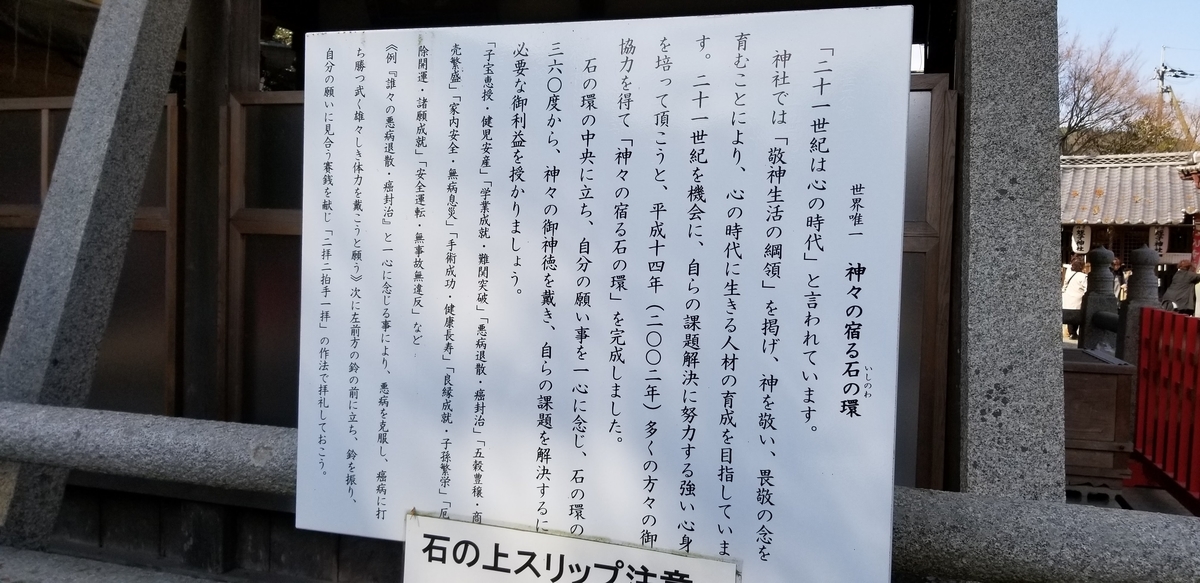 世界唯一　神々の宿る石の環
いしのわ
「二十一世紀は心の時代」と言われています。
神社では「敬神生活の綱領」を掲げ、神を敬い、畏敬の念を
育むことにより、心の時代に生きる人材の育成を目指していま
す。二十一世紀を機会に、自らの課題解決に努力する強い心身
を培って頂こうと、平成十四年（二〇〇二年）多くの方々の御
協力を得て「神々の宿る石の環」を完成しました。
石の環の中央に立ち、自分の願い事を一心に念じ、石の環の
三六〇度から、神々の御神徳を戴き、自らの課題を解決するに
必要な御利益を授かりましょう。
「子宝恵授・健児安産」「学業成就・難関突破」「悪病退散・癌封治」「五穀豊穣・商
売繁盛」「家内安全・無病息災」「手術成功・健康長寿」「良縁成就・子孫繁栄」「厄
除開運・諸願成就」「安全運転・無事故無違反」など
《例『誰々の悪病退散・癌封治』と一心に念じる事により、悪病を克服し、癌病に打
ち勝つ武く雄々しき体力を戴こうと願う》次に左前方の鈴の前に立ち、鈴を振り、
自分の願いに見合う賽銭を献じ「二拝二拍手一拝」の作法で拝礼しておこう。
石の上スリップ注意